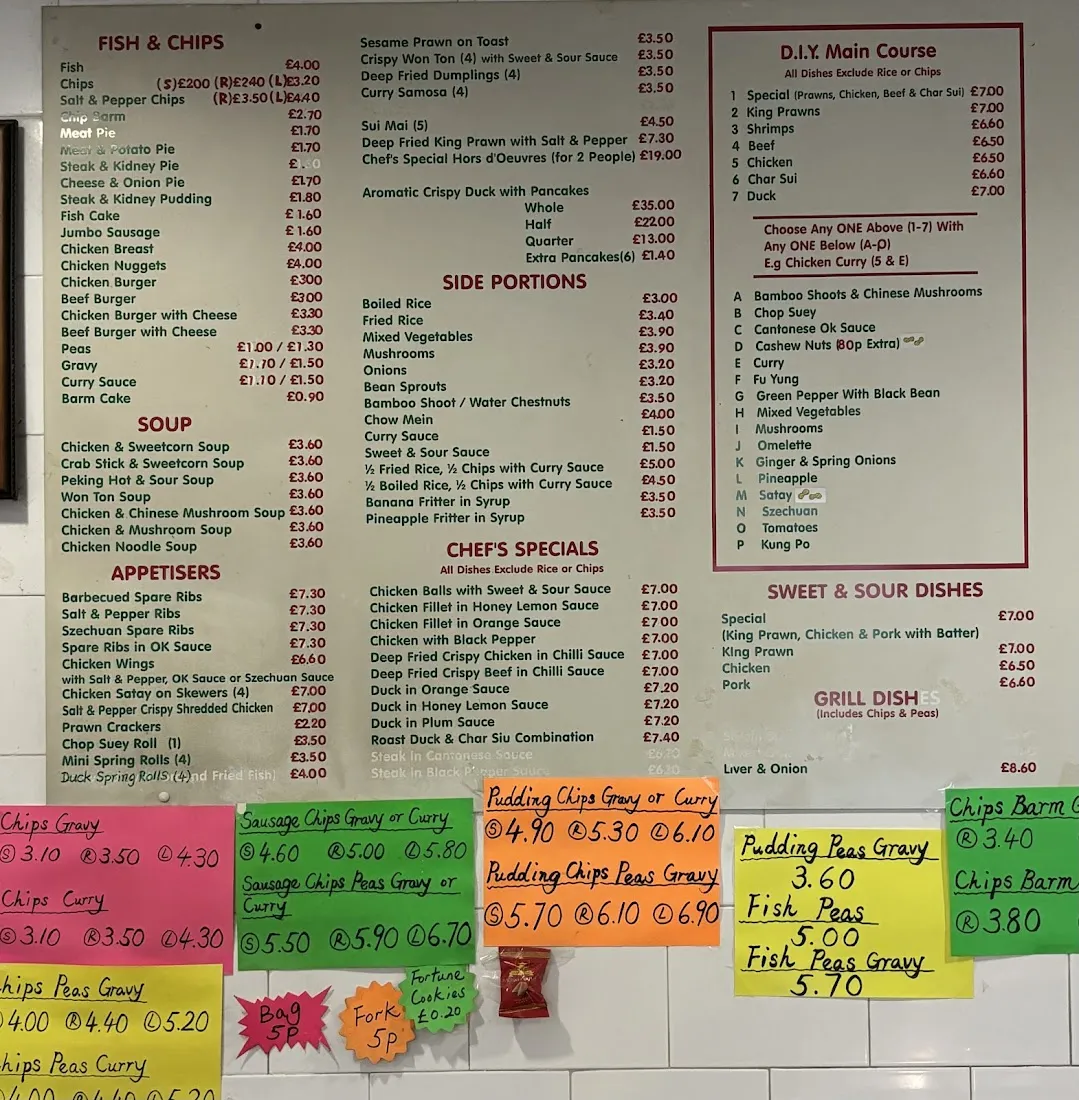 FISH & CHIPS
Fish £4.00
Chips (S)£200 (R)£240 (L)£3.20
Salt & Pepper Chips (R)£3.50 (L)£4.40
Chip Barm £2.70
Meat Pie £1.70
Meat & Potato Pie £1.70
Steak & Kidney Pie
Cheese & Onion Pie £1.70
Steak & Kidney Pudding £1.80
Fish Cake £1.60
Jumbo Sausage £1.60
Chicken Breast £4.00
Chicken Nuggets £4.00
Chicken Burger £300
Beef Burger £300
Chicken Burger with Cheese £3.30
Beef Burger with Cheese £3.30
Peas £1.00 / £1.30
Gravy £1.10 / £1.50
Curry Sauce £1.10 / £1.50
Barm Cake £0.90
SOUP
Chicken & Sweetcorn Soup £3.60
Crab Stick & Sweetcorn Soup £3.60
Peking Hot & Sour Soup £3.60
Won Ton Soup £3.60
Chicken & Chinese Mushroom Soup £3.60
Chicken & Mushroom Soup £3.60
Chicken Noodle Soup £3.60
APPETISERS
Barbecued Spare Ribs £7.30
Salt & Pepper Ribs £7.30
Szechuan Spare Ribs £7.30
Spare Ribs in OK Sauce £7.30
Chicken Wings £6.60
with Salt & Pepper, OK Sauce or Szechuan Sauce
Chicken Satay on Skewers (4) £7.00
Salt & Pepper Crispy Shredded Chicken £7.00
Prawn Crackers £2.20
Chop Suey Roll (1) £3.50
Mini Spring Rolls (4) £3.50
Duck Spring Rolls (4) and Fried Fish) £4.00
Sesame Prawn on Toast £3.50
Crispy Won Ton (4) with Sweet & Sour Sauce £3.50
Deep Fried Dumplings (4) £3.50
Curry Samosa (4) £3.50
Sui Mai (5) £4.50
Deep Fried King Prawn with Salt & Pepper £7.30
Chef's Special Hors d'Oeuvres (for 2 People) £19.00
Aromatic Crispy Duck with Pancakes
Whole £35.00
Half £22.00
Quarter £13.00
Extra Pancakes(6) £1.40
SIDE PORTIONS
Boiled Rice £3.00
Fried Rice £3.40
Mixed Vegetables £3.90
Mushrooms £3.90
Onions £3.20
Bean Sprouts £3.20
Bamboo Shoot / Water Chestnuts £3.50
Chow Mein £4.00
Curry Sauce £1.50
Sweet & Sour Sauce £1.50
½ Fried Rice, ½ Chips with Curry Sauce £5.00
½ Boiled Rice, ½ Chips with Curry Sauce £4.50
Banana Fritter in Syrup £3.50
Pineapple Fritter in Syrup £3.50
CHEF'S SPECIALS
All Dishes Exclude Rice or Chips
Chicken Balls with Sweet & Sour Sauce £7.00
Chicken Fillet in Honey Lemon Sauce £7.00
Chicken Fillet in Orange Sauce £7 00
Chicken with Black Pepper £7.00
Deep Fried Crispy Chicken in Chilli Sauce £7.00
Deep Fried Crispy Beef in Chilli Sauce £7.00
Duck in Orange Sauce £7.20
Duck in Honey Lemon Sauce £7.20
Duck in Plum Sauce £7.20
Roast Duck & Char Siu Combination £7.40
Steak in Cantonese Sauce £6.20
Steak in Black Pepper Sauce £6.20
D.I.Y. Main Course
All Dishes Exclude Rice or Chips
1 Special (Prawns, Chicken, Beef & Char Sui) £7.00
2 King Prawns £7.00
3 Shrimps £6.60
4 Beef £6.50
5 Chicken £6.50
6 Char Sui £6.60
7 Duck £7.00
Choose Any ONE Above (1-7) With
Any ONE Below (A-P)
E.g Chicken Curry (5 & E)
A Bamboo Shoots & Chinese Mushrooms
B Chop Suey
C Cantonese Ok Sauce
D Cashew Nuts (80p Extra)
E Curry
F Fu Yung
G Green Pepper With Black Bean
H Mixed Vegetables
I Mushrooms
J Omelette
K Ginger & Spring Onions
L Pineapple
M Satay
N Szechuan
O Tomatoes
P Kung Po
SWEET & SOUR DISHES
Special £7.00
(King Prawn, Chicken & Pork with Batter)
King Prawn £7.00
Chicken £6.50
Pork £6.60
GRILL DISHES
(Includes Chips & Peas)
Liver & Onion £8.60
Chips Gravy
Ⓢ 3.10 Ⓡ 3.50 Ⓛ 4.30
Chips Curry
Ⓢ 3.10 Ⓡ 3.50 Ⓛ 4.30
hips Peas Gravy
4.00 Ⓡ 4.40 Ⓛ 5.20
hips Peas Curry
4.00 Ⓡ 4.40 Ⓛ 5.20
Sausage Chips Gravy or Curry
Ⓢ 4.60 Ⓡ 5.00 Ⓛ 5.80
Sausage Chips Peas Gravy or
Curry
Ⓢ 5.50 Ⓡ 5.90 Ⓛ 6.70
Bag
5P
Fork
5P
Fortune
Cookies
£0.20
Pudding Chips Gravy or Curry
Ⓢ 4.90 Ⓡ 5.30 Ⓛ 6.10
Pudding Chips Peas Gravy
Ⓢ 5.70 Ⓡ 6.10 Ⓛ 6.90
Pudding Peas Gravy
3.60
Fish Peas
5.00
Fish Peas Gravy
5.70
Chips Barm G
Ⓡ 3.40
Chips Barm
Ⓡ 3.80